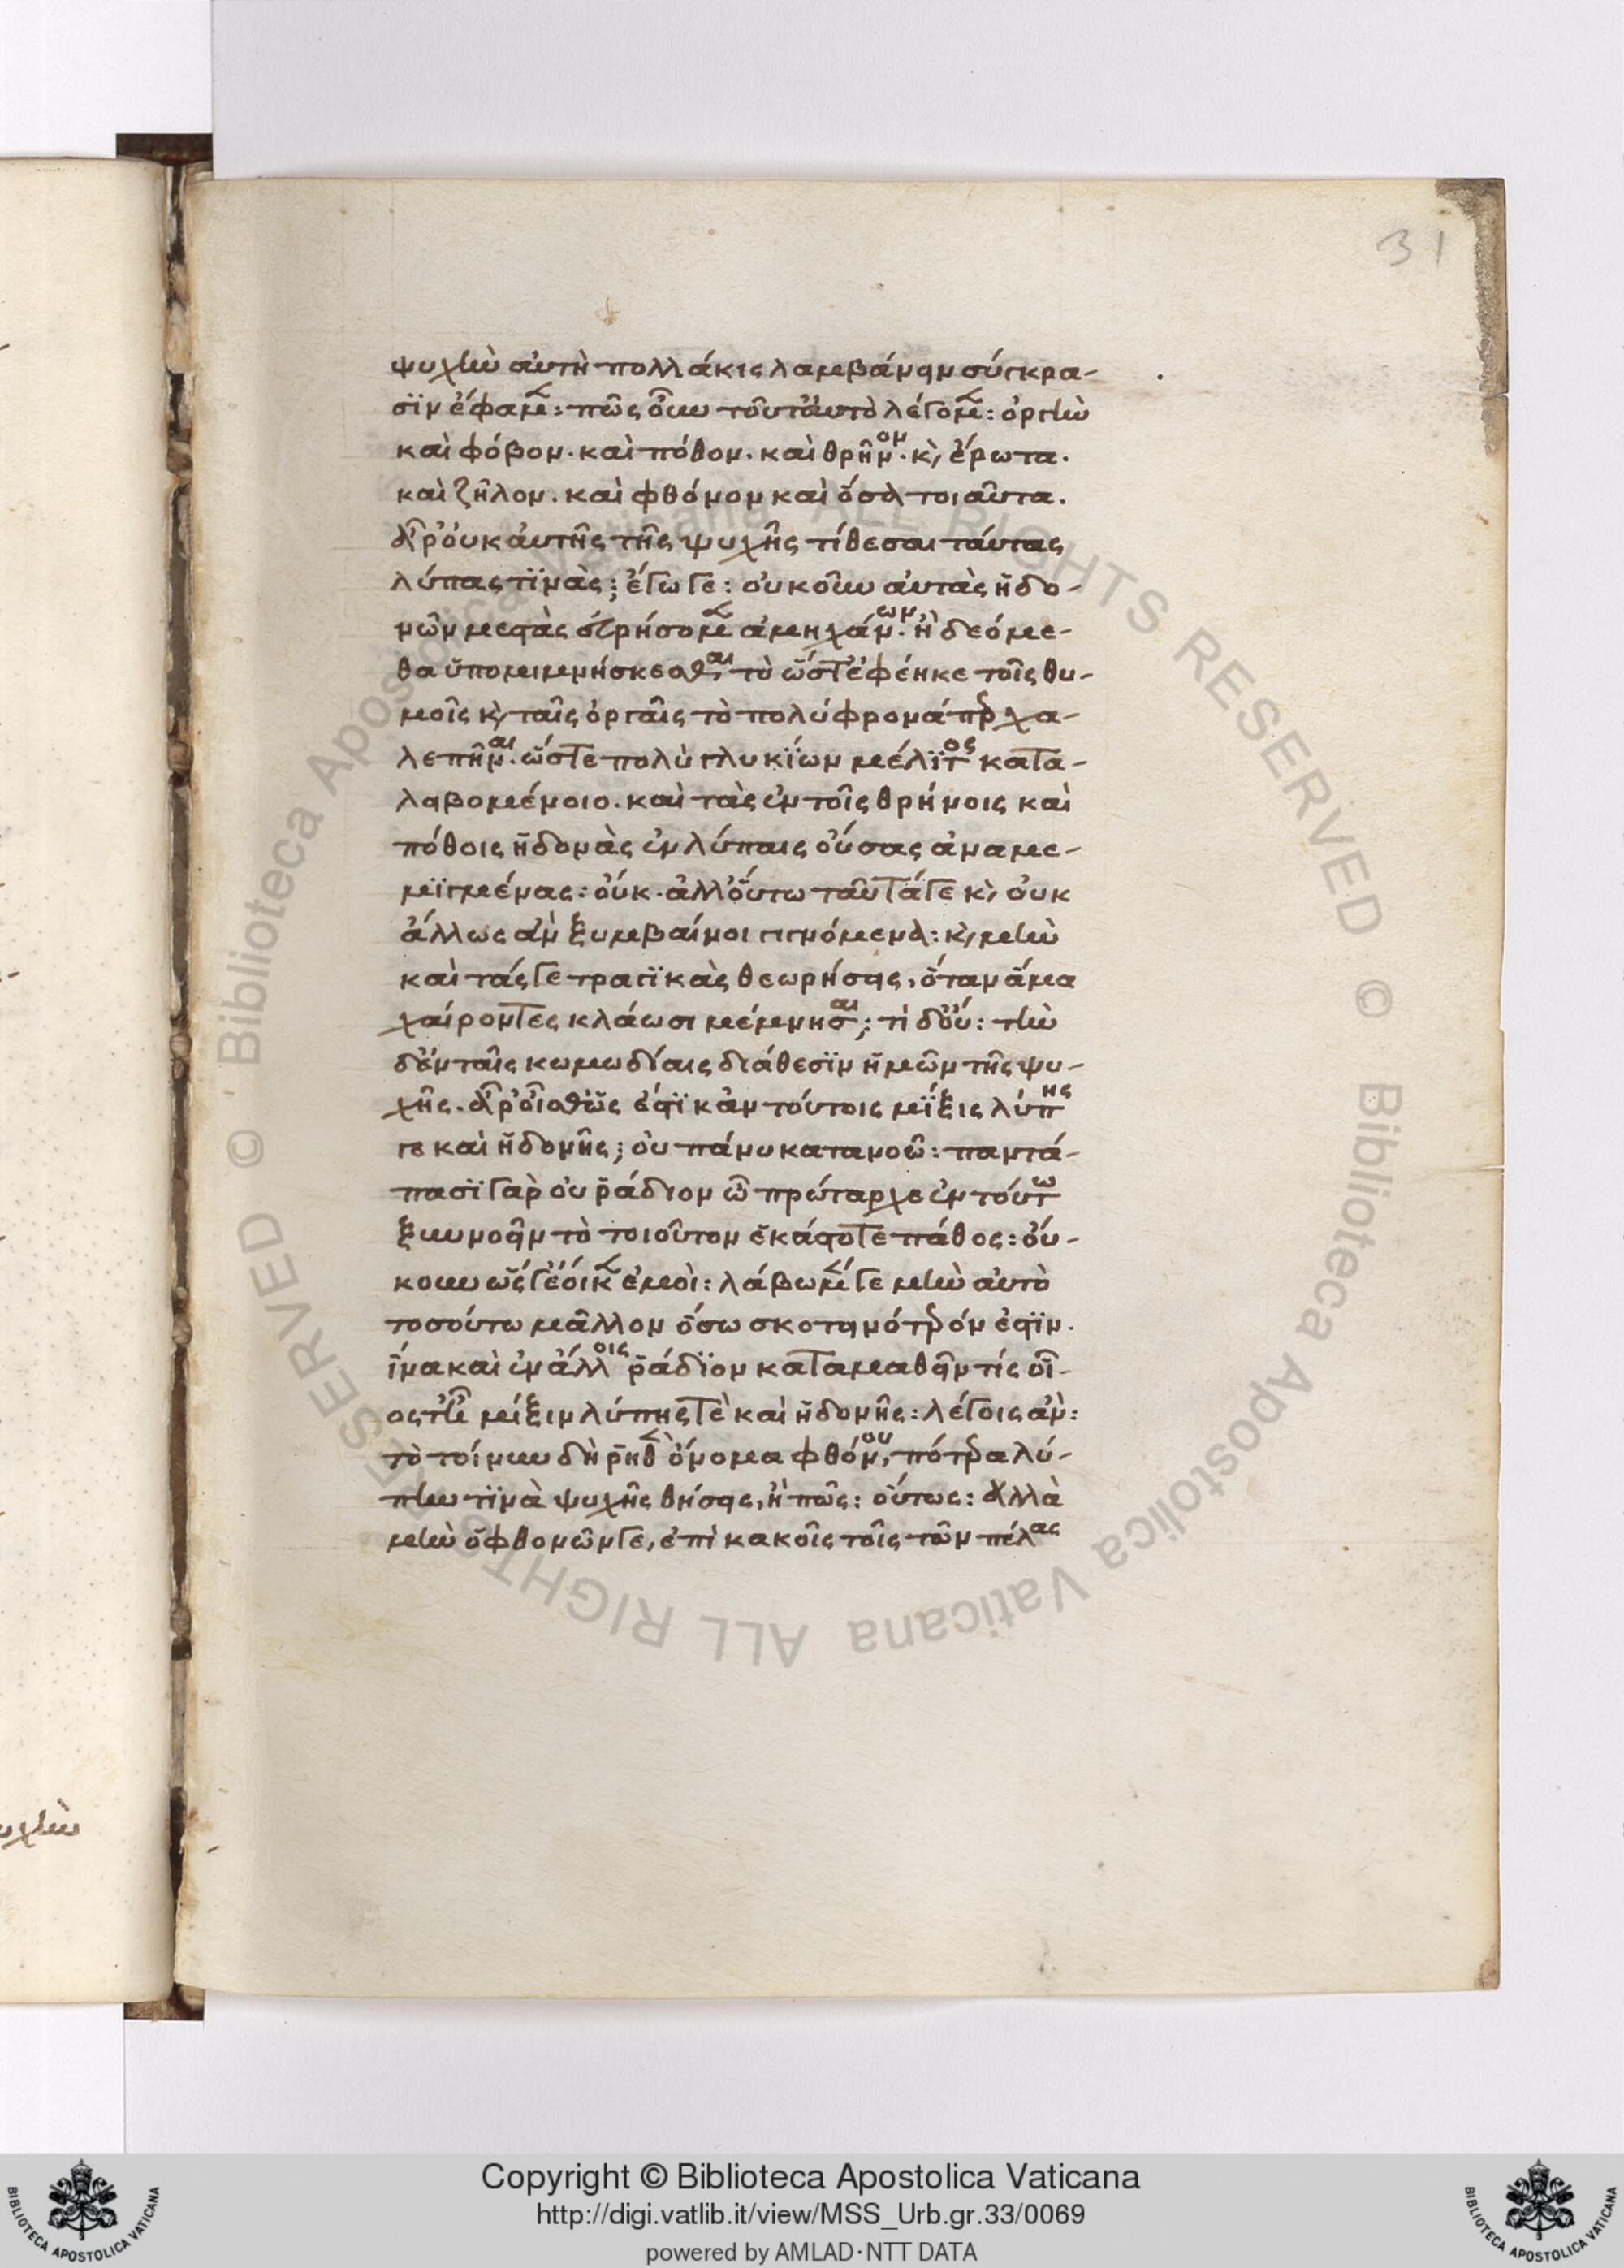 31
ψυχὴν αὐτὴ πολλάκις λαμβάνειν σύγκρα-
σϊν ἔφαμεν: πῶς οὖν τοῦτ᾽ αὐτὸ λέγομεν: ὀργὴν
καὶ φόβον. καὶ πόθον. καὶ θρῆνον. κ, ἔρωτα.
καὶ ζῆλον. καὶ φθόνον καὶ ὅσα τοιαῦτα.
ἆρ᾽ οὐκ αὐτῆς τῆς ψυχῆς τίθεσαι ταύτας
λύπας τϊνὰς; ἔγωγε: οὐκοῦν αὐτὰς ἡδο-
νῶν μεστὰς εὑρήσομεν ἀμηχάνων. ἢ δεόμε-
θα ὑπομιμνήσκεσθαι τὸ ὥστ᾽ ἐφέηκε τοῖς θυ-
μοῖς κ, ταῖς ὀργαῖς τὸ πολύφρονά περ χα-
λεπῆναι. ὥστε πολὺ γλυκΐων μέλϊτος κατα-
λειβομένοιο. καὶ τὰς ἐν τοῖς θρήνοις καὶ
πόθοις ἡδονὰς ἐν λύπαις οὔσας ἀναμε-
μϊγμένας: οὔκ. ἀλλ᾽ οὕτω ταῦτά γε κ, οὐκ
ἄλλως ἂν ξυμβαίνοι γιγνόμενα: κ, μὴν
καὶ τάς γε τραγϊκὰς θεωρήσεις, ὅταν ἅμα
χαίροντες κλάωσι μέμνησαι; τί δ᾽ οὔ: τὴν
δ᾽ ἐν ταῖς κωμωδίαις διάθεσϊν ἡμῶν τῆς ψυ-
χῆς. ἆρ᾽ οἶσθ᾽ ὡς ἔστϊ κἀν τούτοις μΐξις λύπης
τε καὶ ἡδονῆς; οὐ πάνυ κατανοῶ: παντά-
πασϊ γὰρ οὐ ῥάδιον ὦ πρώταρχε ἐν τούτω
ξυννοεῖν τὸ τοιοῦτον ἑκάστοτε πάθος: οὔ-
κουν ὥς γ᾽ ἔοικεν ἐμοὶ: λάβωμέν γε μὴν αὐτὸ
τοσούτω μᾶλλον ὅσω σκοτεινότερόν ἐστϊν.
ἵνα καὶ ἐν ἄλλοις ῥάδϊον καταμαθεῖν τίς οἷ-
ος τ᾽ εἶ μίξιν λύπης τὲ καὶ ἡδονῆς: λέγοις ἄν:
τὸ τοίνυν δὴ ῥηθὲν ὄνομα φθόνου, πότερα λύ-
πην τϊνὰ ψυχῆς θήσεις, ἢ πῶς: οὕτως: ἀλλὰ
μὴν ὁ φθονῶν γε, ἐπὶ κακοῖς τοῖς τῶν πέλας
υχὴν
© Biblioteca Apostolica Vaticana ALL RIGHTS RESERVED © Biblioteca Apostolica Vaticana ALL RIGHTS RESERVED
Copyright © Biblioteca Apostolica Vaticana
http://digi.vatlib.it/view/MSS_Urb.gr.33/0069
powered by AMLAD·NTT DATA
BIBLIOTECA APOSTOLICA VATICANA
BIBLIOTECA APOSTOLICA VATICANA